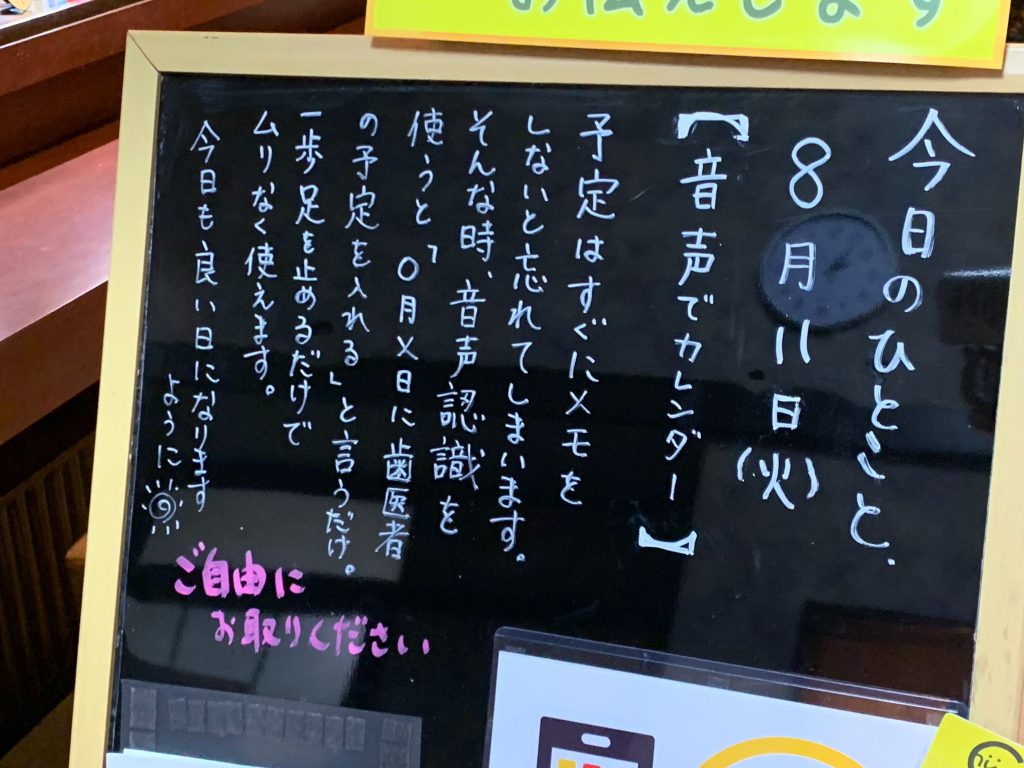 お伝えします
今日のひとこと.
8月11日(火)
【音声でカレンダー】
予定はすぐにメモを
しないと忘れてしまいます。
そんな時、音声認識を
使うと「〇月×日に歯医者
の予定を入れる」と言うだけ。
一歩足を止めるだけで
ムリなく使えます。
今日も良い日になります
ように
ご自由に
お取りください